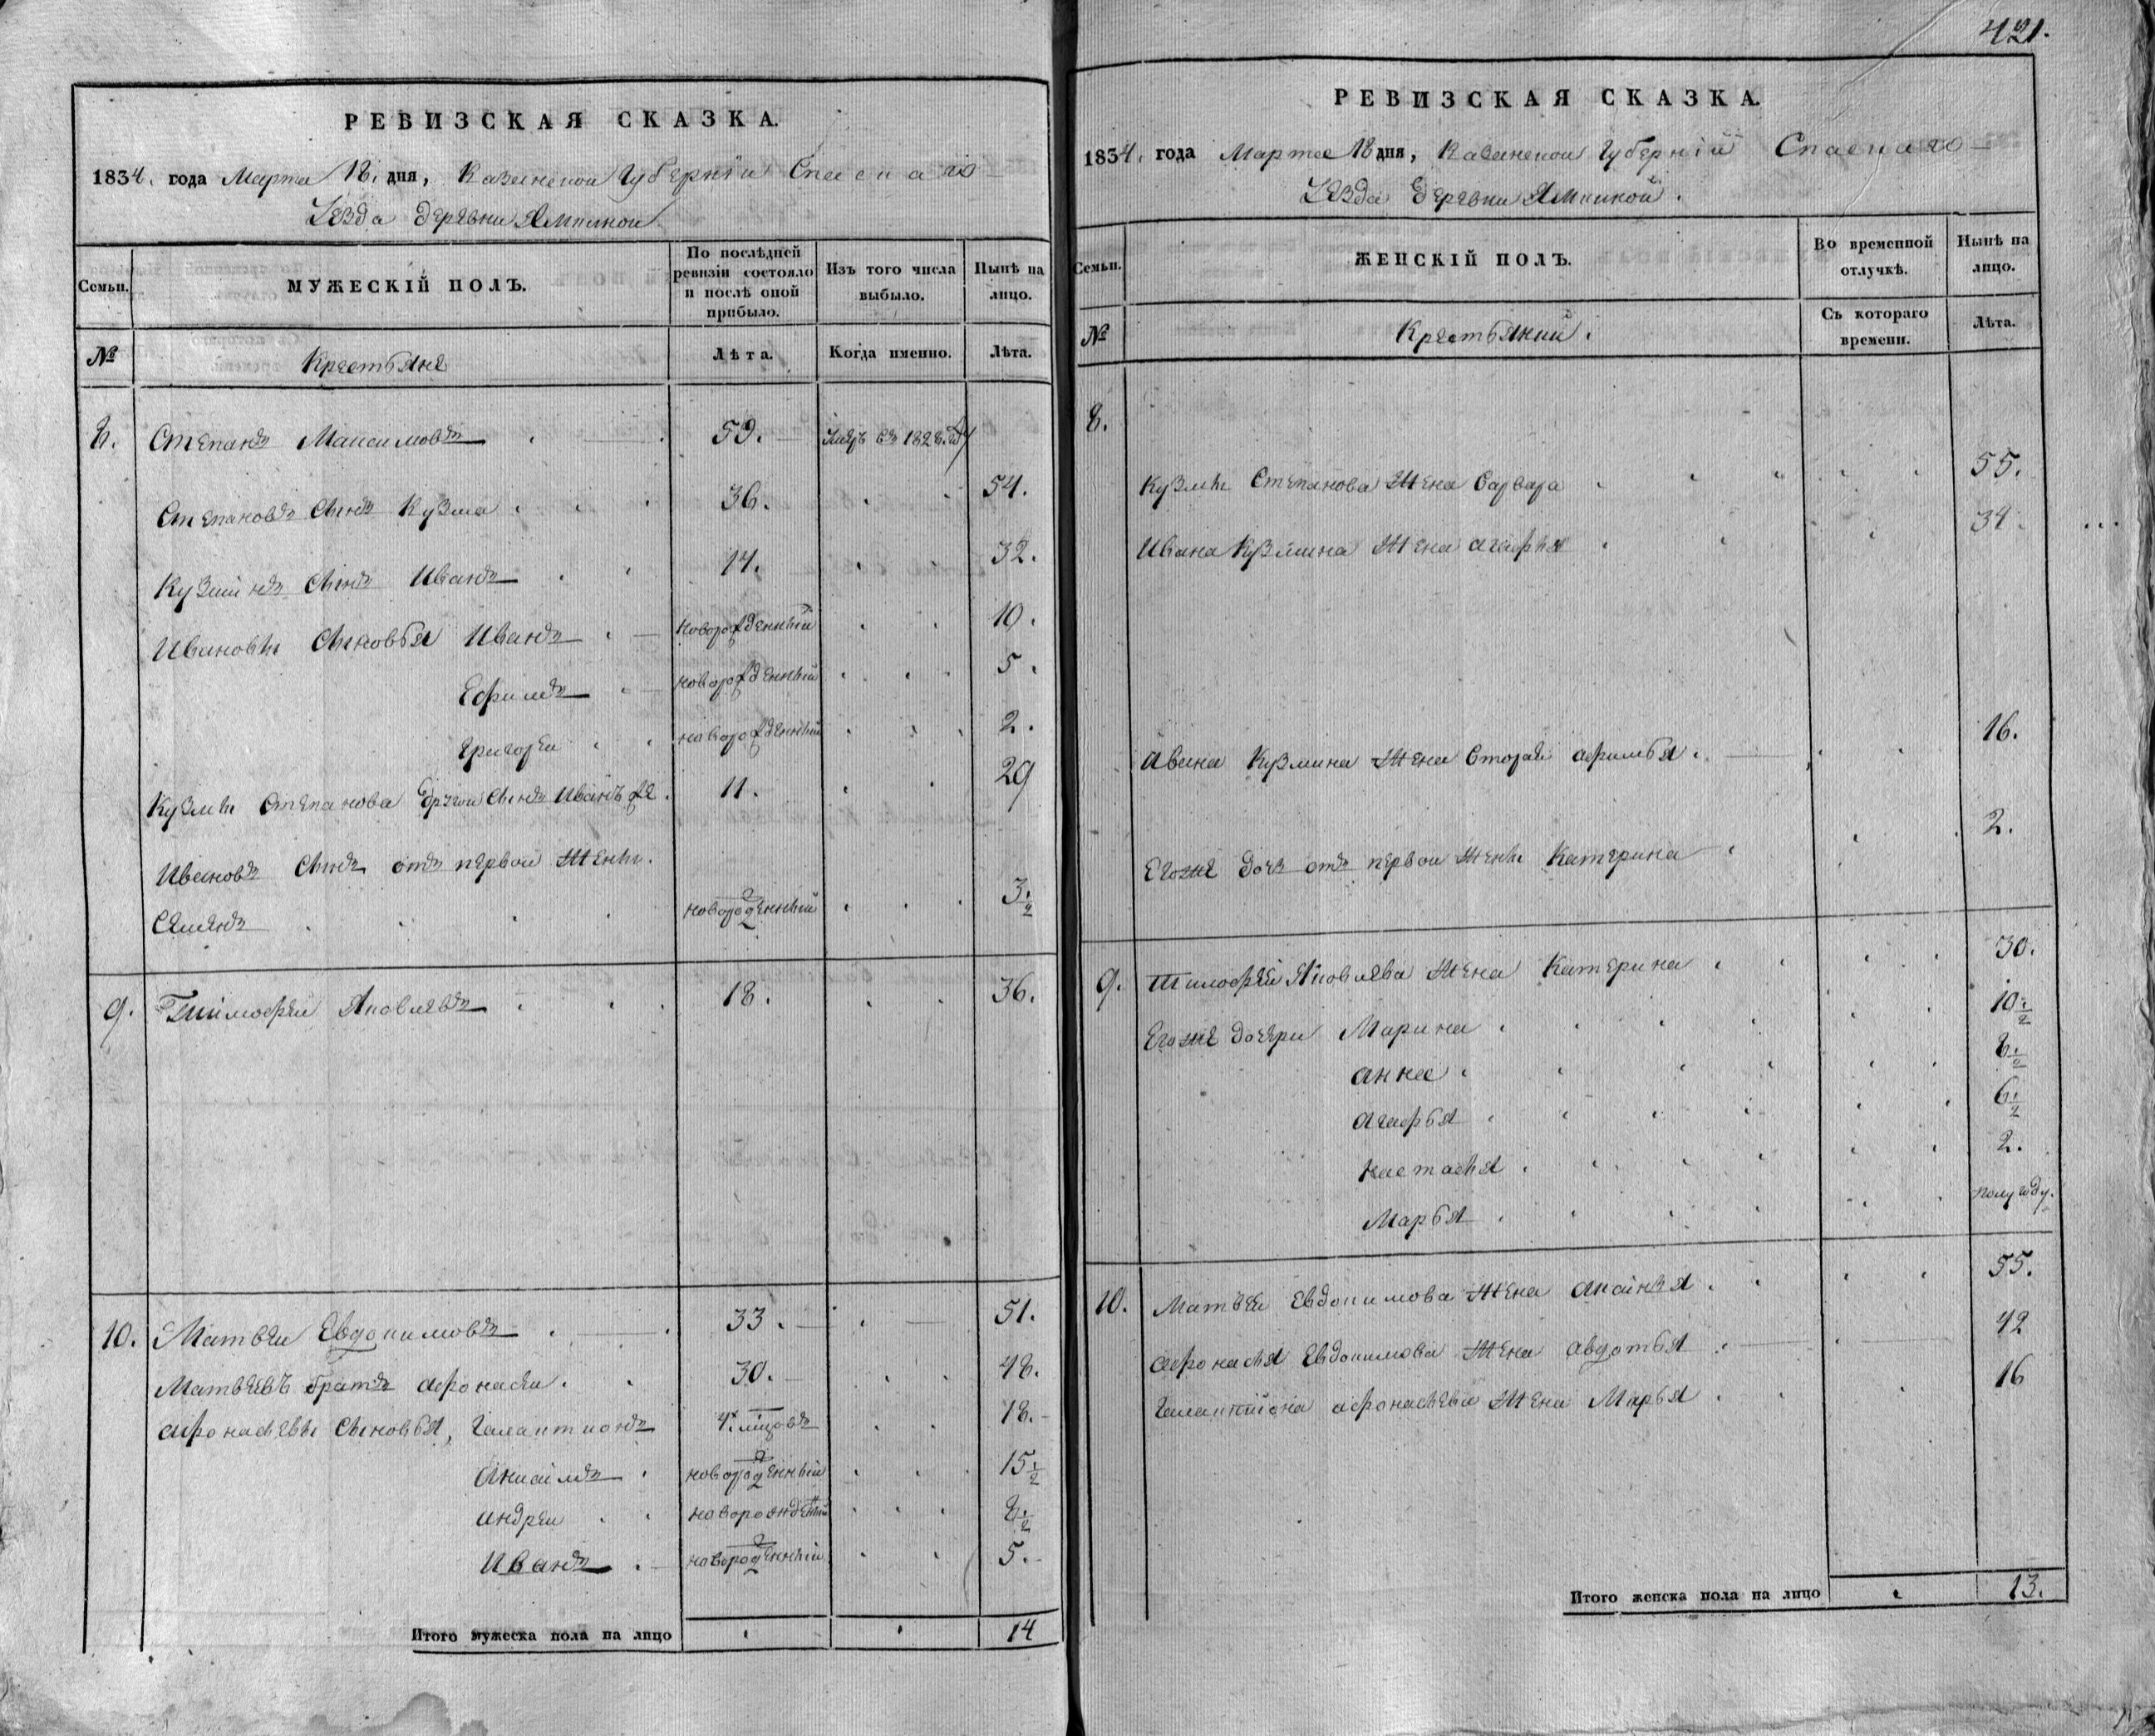 РЕВИЗСКАЯ СКАЗКА.
1834. года Марта 18. дня, Казанской Губерніи Спаскаго
Уезда деревни Ямкиной
Семьи.
МУЖЕСКІЙ ПОЛЪ.
По послѣдней ревизіи состояло и послѣ оной прибыло.
Изъ того числа выбыло.
Нынѣ на лицо.
№
Крестьяне
Лѣта.
Когда именно.
Лѣта.
8. Степанъ Максимовъ 59. въ 1828.
Степановъ сынъ Кузма 36. 54.
Кузминъ сынъ Иванъ 14. 32.
Ивановы сыновья Иванъ новорожденный 10.
Ефимъ новорожденный 5.
Григорей новорожденный 2.
Кузмы Степанова другой сынъ Иванъ же 11. 29
Ивановъ сынъ отъ первой жены.
Семенъ новорожденный 3 1/2
9. Тимофей Яковлевъ 18. 36.
10. Матвей Евдокимовъ 33. 51.
Матвеевъ братъ Афонасей 30. 48.
Афонасьевы сыновья, Галактионъ 4х мцовъ 18.
Михаилъ новорожденный 15 1/2
Андреи новорожденный 8 1/2
Иванъ новорожденный 5.
Итого мужеска пола на лицо 14
421.
РЕВИЗСКАЯ СКАЗКА.
1834. года Марта 18 дня, Казанской Губерніи Спаскаго
Уезда деревни Ямкиной.
Семьи.
ЖЕНСКІЙ ПОЛЪ.
Во временной отлучкѣ.
Нынѣ на лицо.
№
Крестьянки.
Съ котораго времени.
Лѣта.
8.
Кузмы Степанова жена Варвара 55.
Ивана Кузмина жена Агафья 34.
Ивана Кузмина жена вторая Афимья. 16.
Его же дочь отъ первой жены Катерина 2.
9. Тимофей Яковлева жена Катерина 30.
Его же дочери Марина 10 1/2
Анна 8 1/2
Агафья 6 1/2
Настасья 2.
Марья полугоду.
10. Матвеи Евдокимова жена 55.
Афонасья Евдокимова жена Авдотья 42
Галактиона Афонасьева жена Марья 16
Итого женска пола на лицо 13.